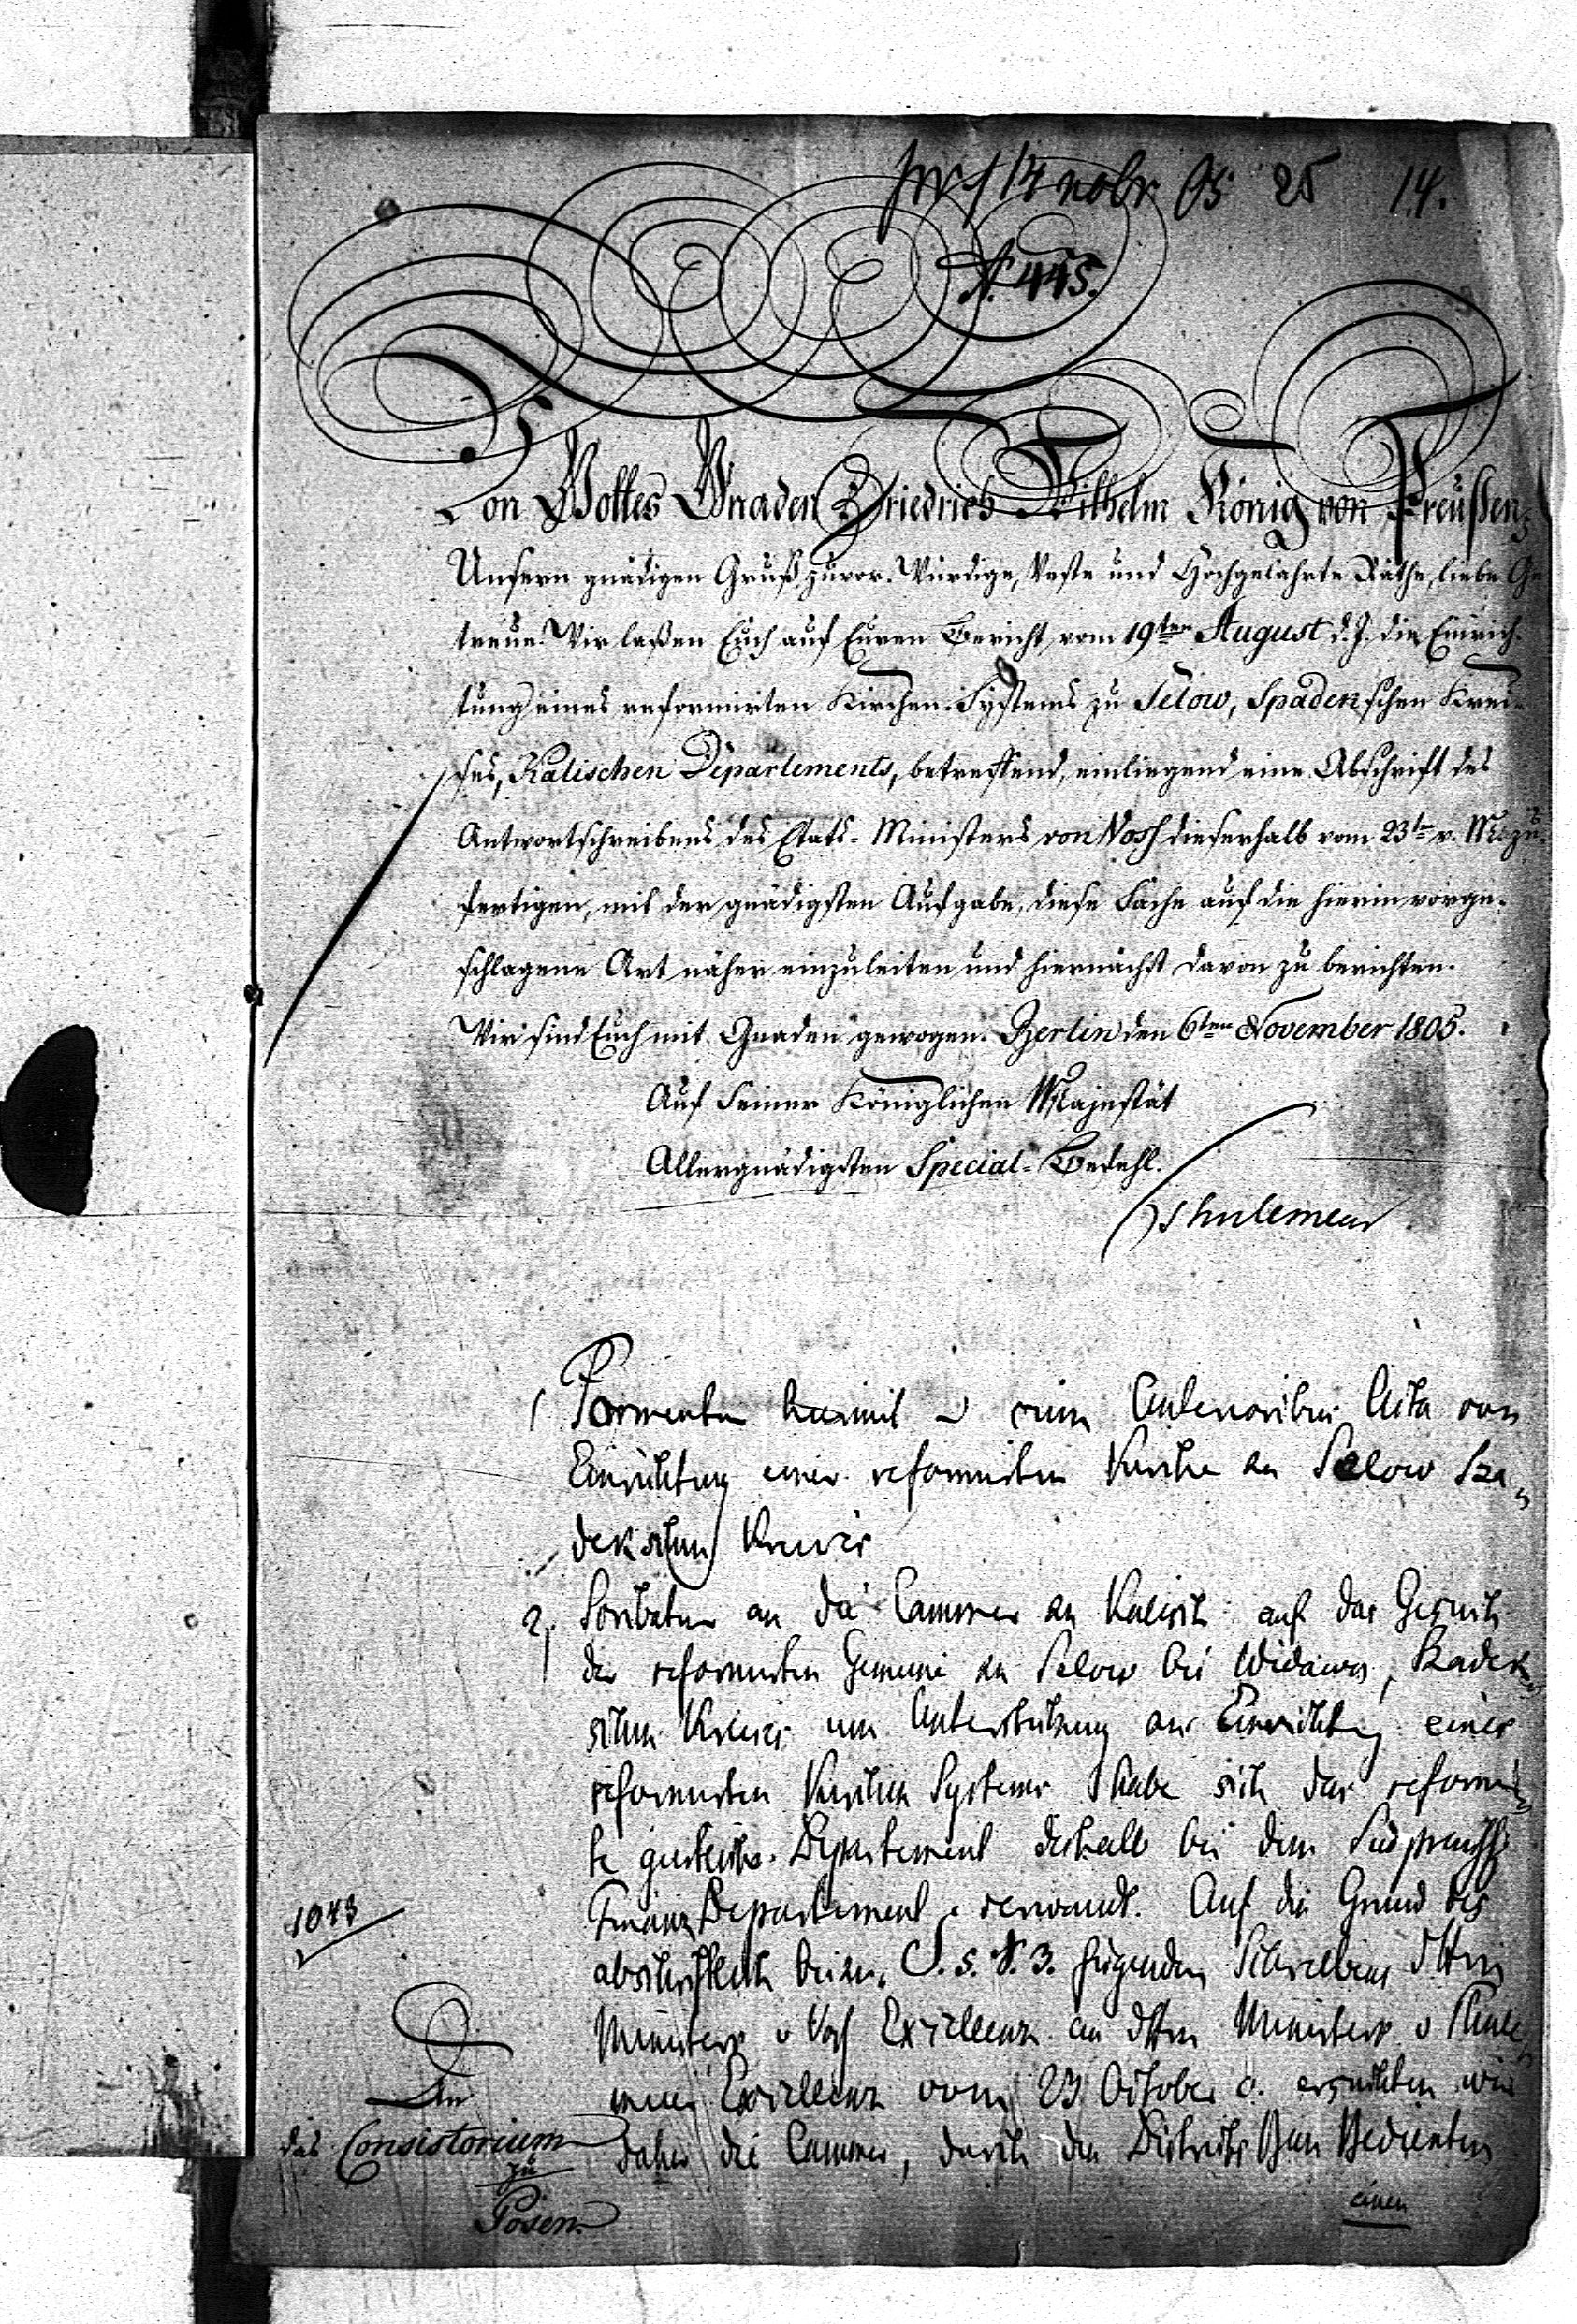 14 nobr 05 25 14.
N. 445.
Von Gottes Gnaden Friedrich Wilhelm König von Preußen,
Unsern gnädigen Gruß zuvor. Würdige, Veste und Hochgelahrte Räthe, liebe Ge-
treue. Wir laßen Euch auf Euren Bericht vom 19ten August d. J. die Einrich-
tung eines reformirten Kirchen-Systems zu Selow, Spadekschen Krei-
ses, Kalischen Departements, betreffend, einliegend eine Abschrift des
Antwortschreibens des Etats-Ministers von Voss dieserhalb vom 23ten v. M. zu-
fertigen, mit der gnädigsten Aufgabe, diese Sache auf die hierin vorge-
schlagene Art näher einzuleiten und hiernächst davon zu berichten.
Wir sind Euch mit Gnaden gewogen. Berlin den 6ten November 1805.
Auf Seiner Königlichen Majestät
Allergnädigsten Special-Befehl.
Thulemeier
1 hiermit Acta von
Einrichtung einer reformirten Kirche zu Selow Sza-
dekschen Kreises
2, Scribatur an die Cammer zu Kalisch: auf das Gesuch
der reformirten Gemeine zu Selow bei Widawa, Szadek-
schen Kreises um Unterstützung zur Einrichtung eines
reformirten Kirchen Systems habe sich das reformir-
te geistliche Departement deshalb bei dem Südpreuß.
Finanz Departement verwandt. Auf den Grund des
abschriftlich S. s. N. 3. Schreibens des Herrn
Ministers v Voss Excellenz an des Herrn Ministers v Thule-
meier Excellenz vom 23 October c. ersuchten wir
daher die Cammer, durch den Districts Bau Bedienten
einen
1043
An
das Consistorium
zu
Posen.